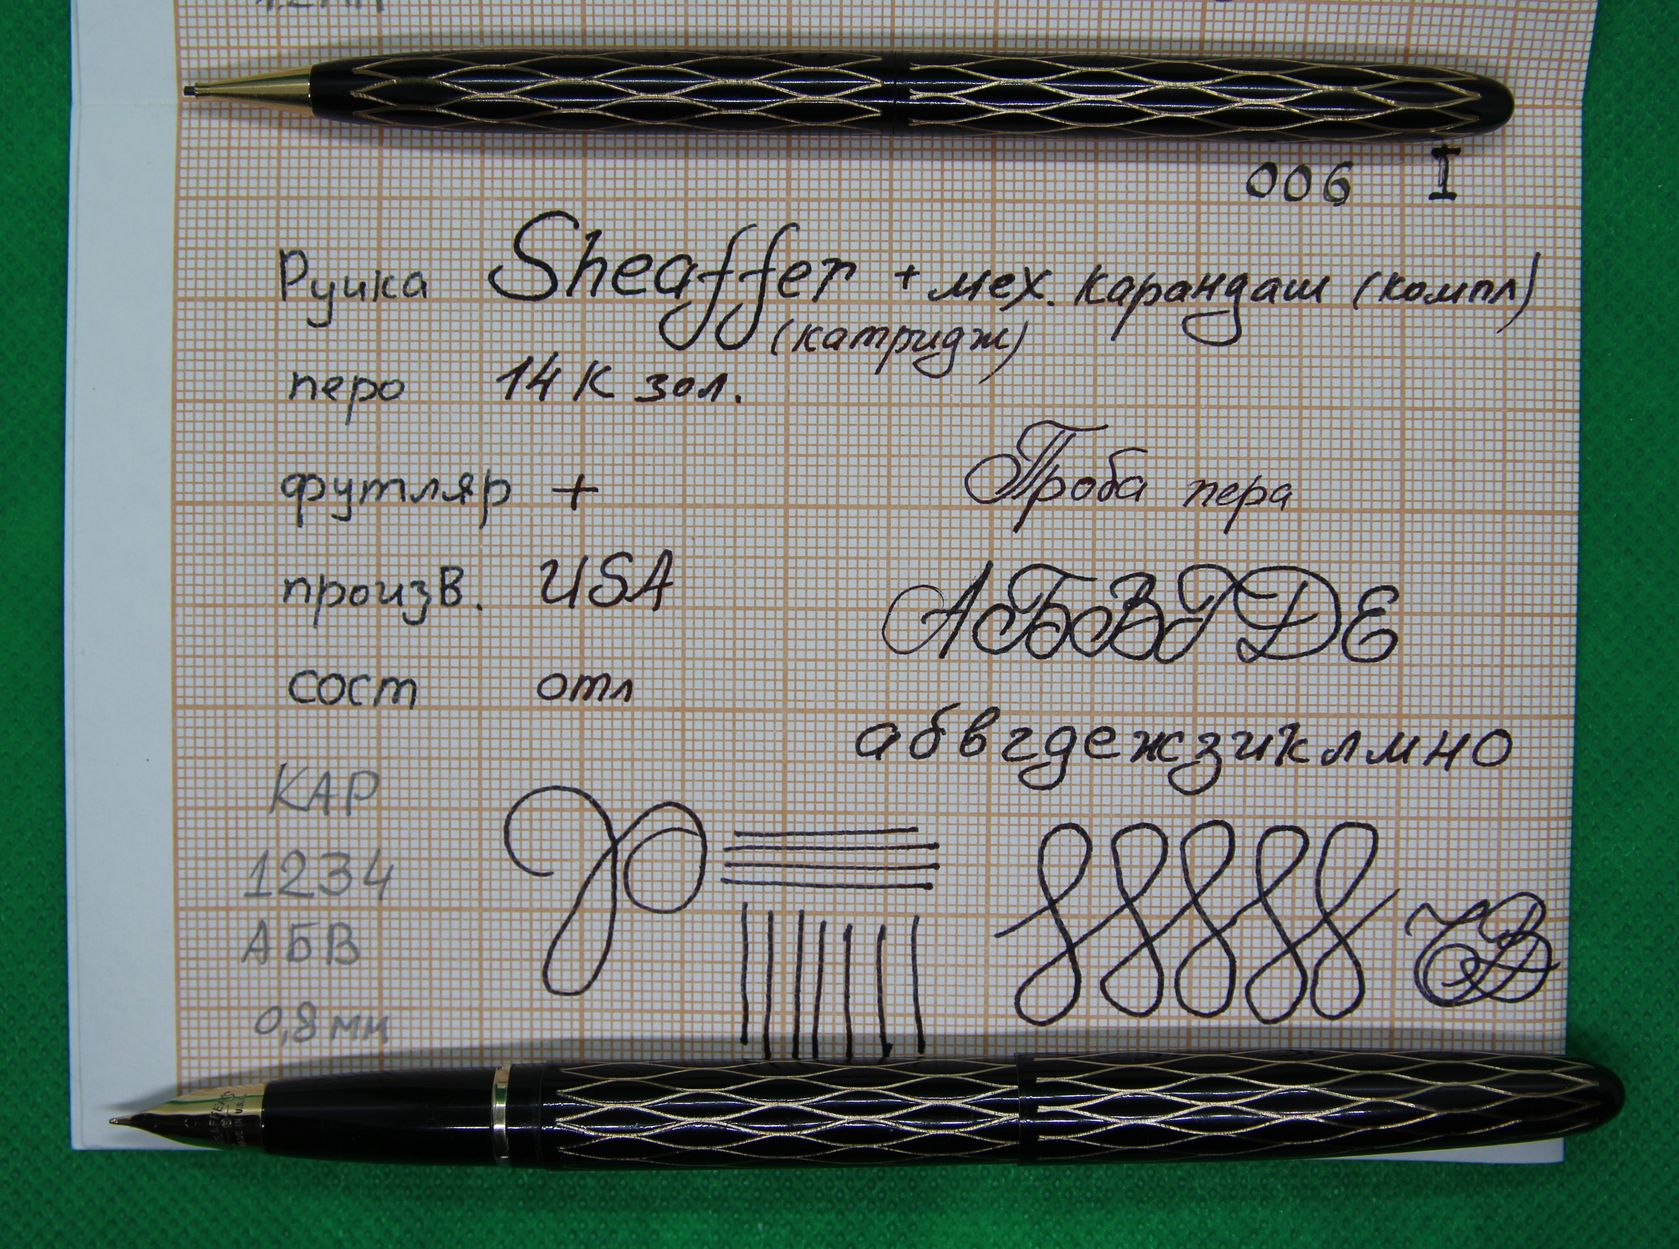 006 I
Ручка Sheaffer + мех. карандаш (компл)
(катридж)
перо 14К зол.
футляр +
Проба пера
произв. USA
АБВГДЕ
сост отл
абвгдежзиклмно
КАР
1234
АБВ
0,8 мм